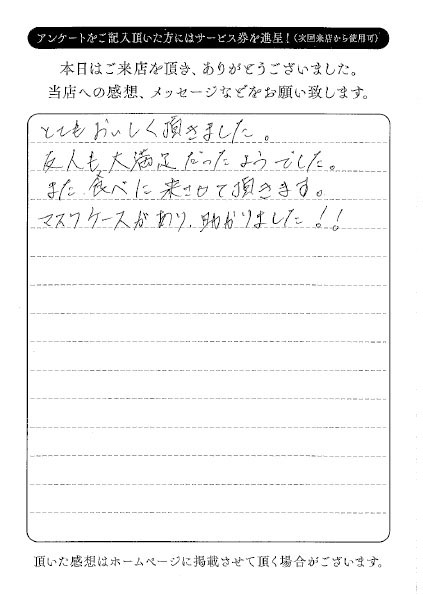 アンケートをご記入頂いた方にはサービス券を進呈!(次回来店から使用可)
本日はご来店を頂き、ありがとうございました。
当店への感想、メッセージなどをお願い致します。
とてもおいしく頂きました。
友人も大満足だったようでした。
また食べに来させて頂きます。
マスクケースがあり、助かりました!!
頂いた感想はホームページに掲載させて頂く場合がございます。